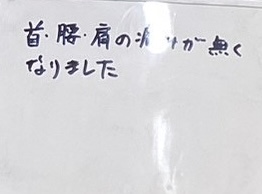 首・腰・肩の痛みが無く
なりました